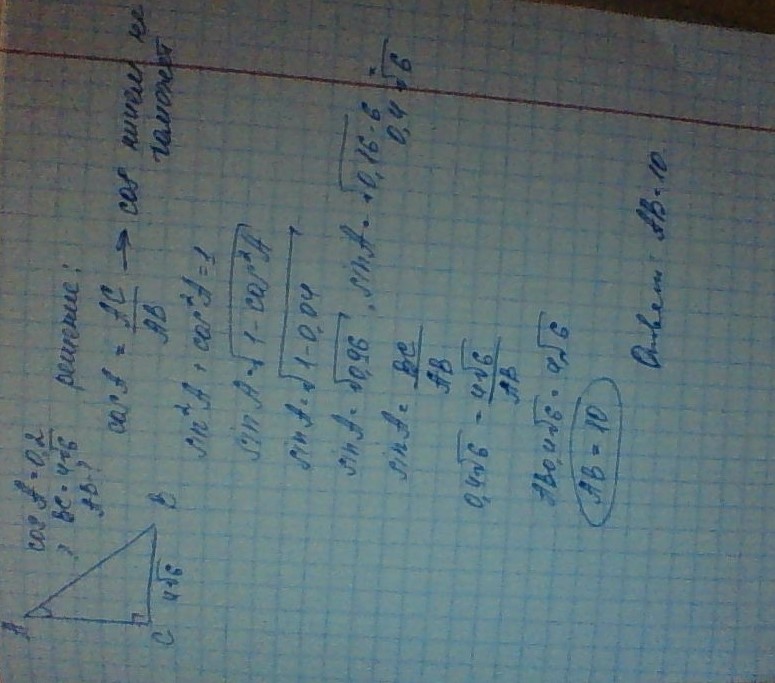 A
C
B
4√6
cos A = 0,2
BC = 4√6
AB - ?
решение:
cos A = AC / AB → cos ничем не поможет
sin²A + cos²A = 1
sin A = √1 - cos²A
sin A = √1 - 0,04
sin A = √0,96, sin A = √0,16 · 6
0,4 √6
sin A = BC / AB
0,4√6 = 4√6 / AB
AB 0,4√6 = 4√6
AB = 10
Ответ: AB = 10